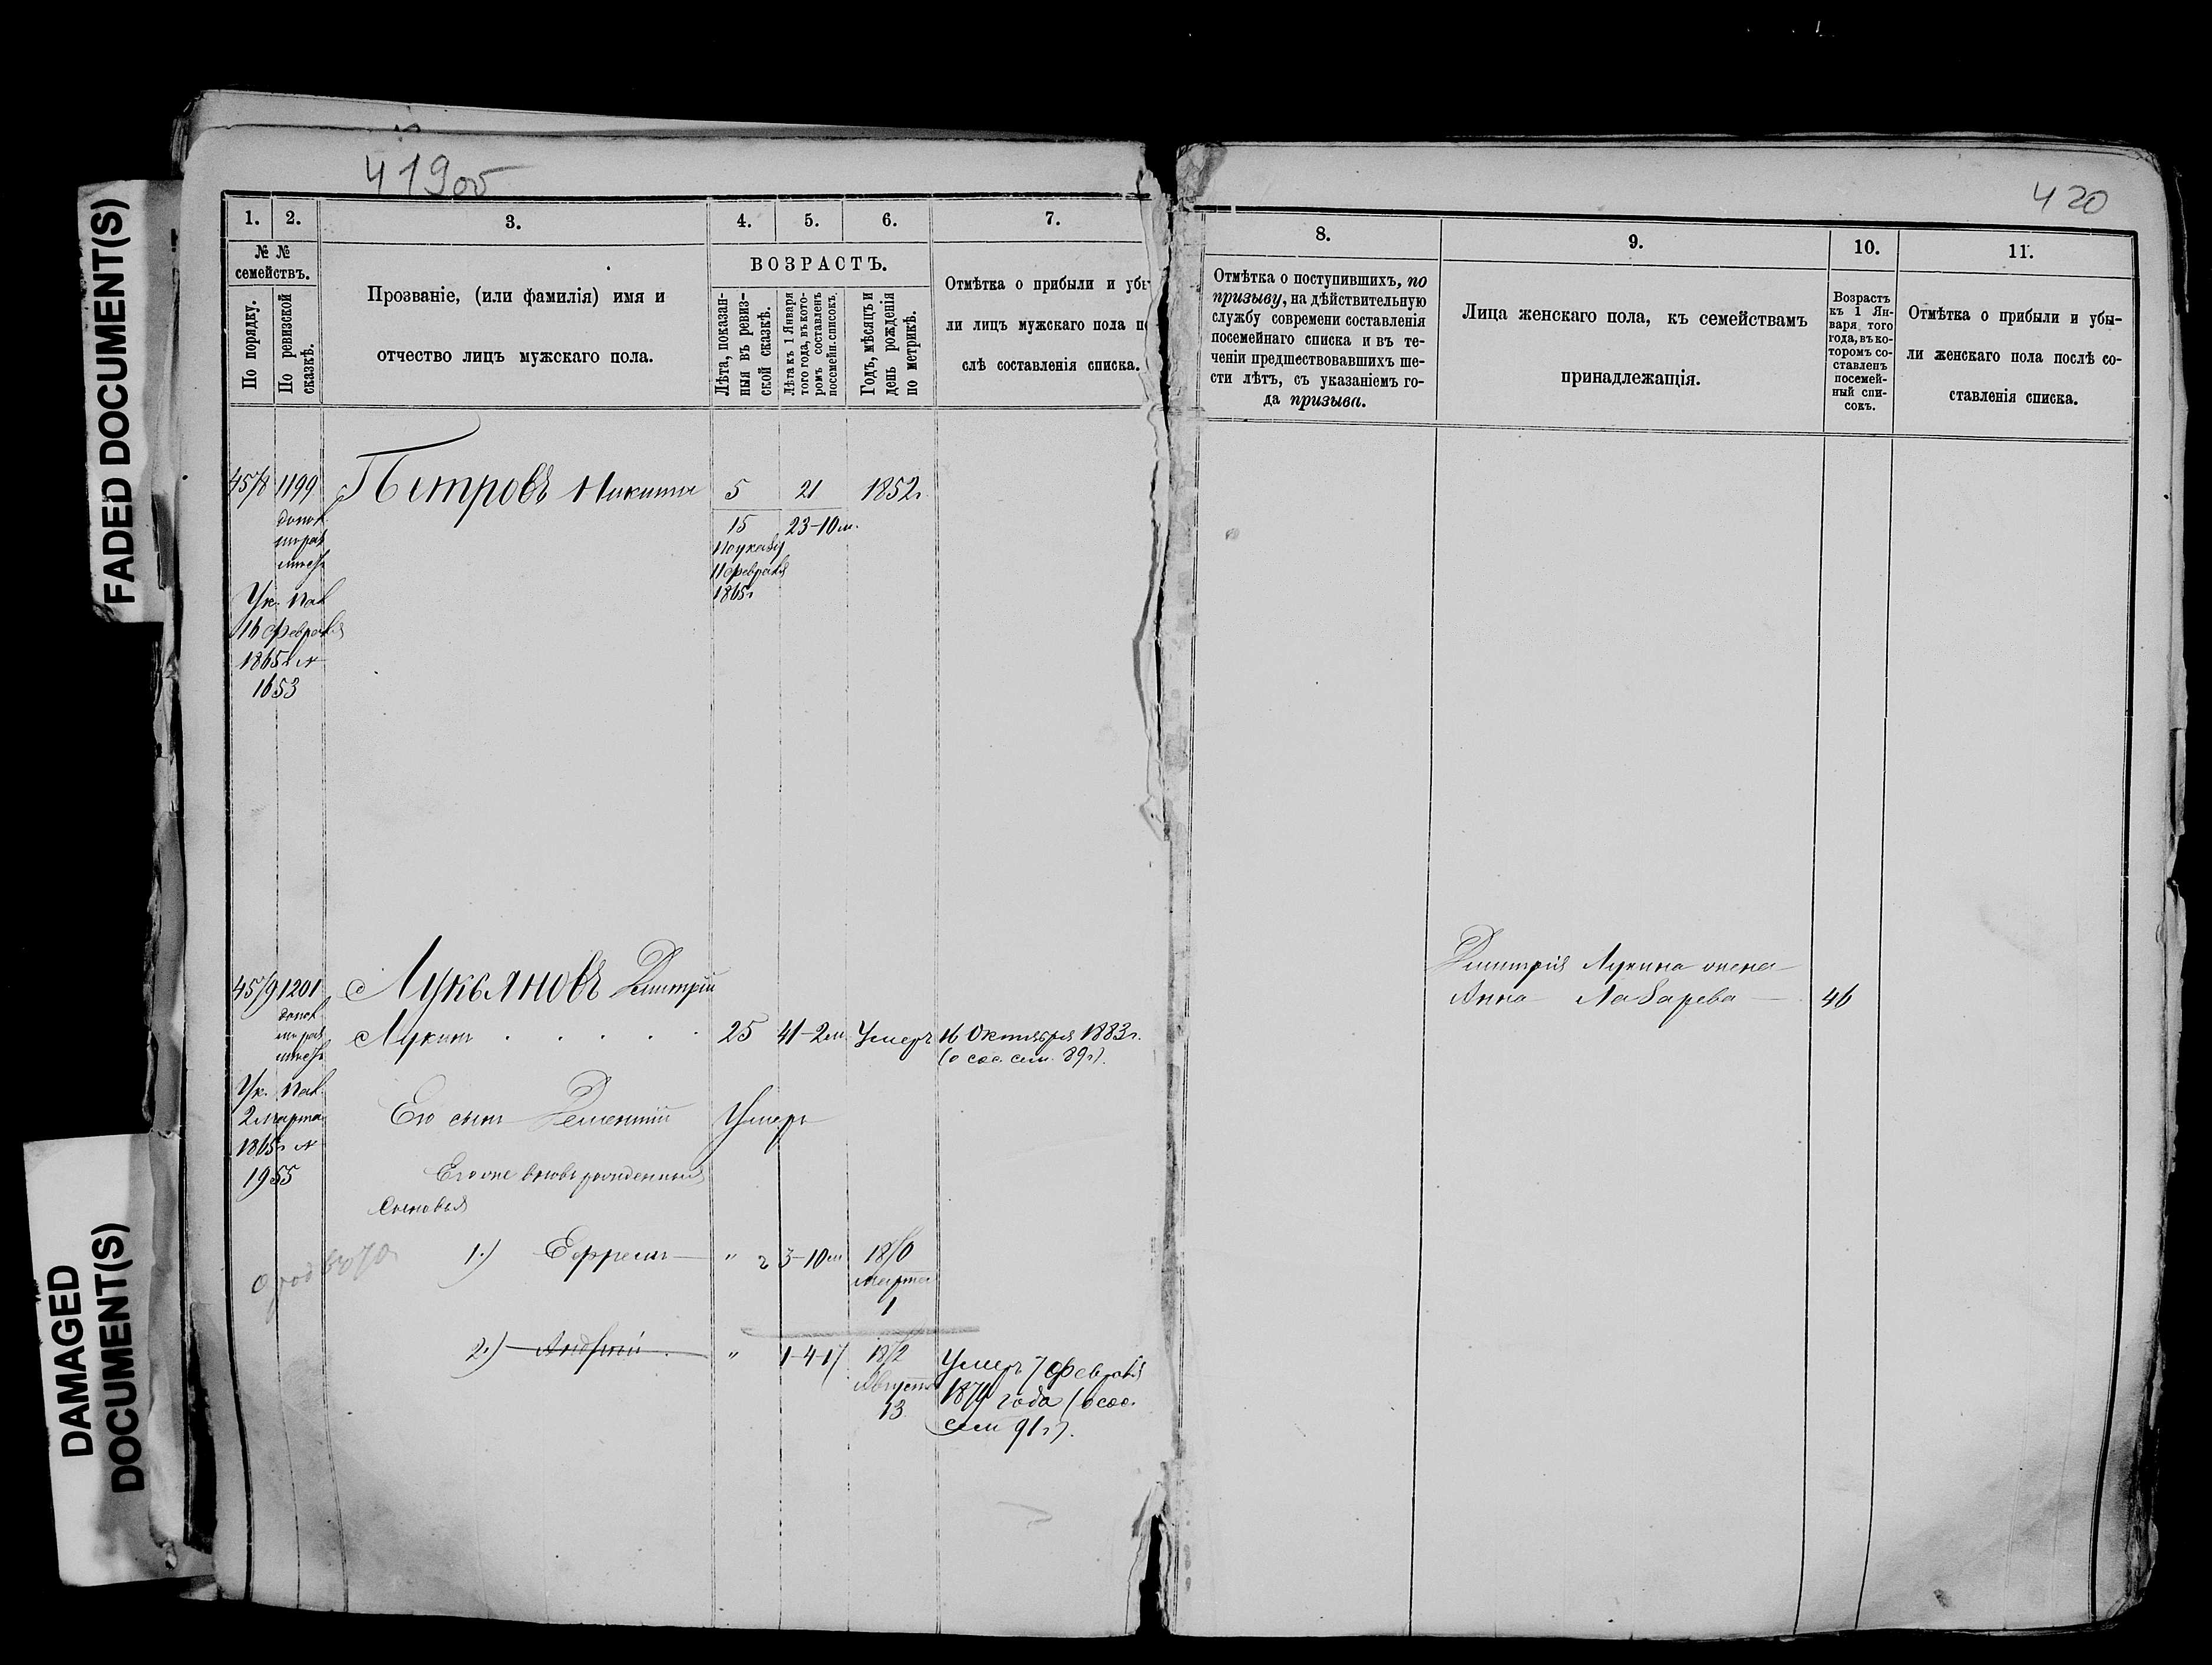 419об
420
FADED DOCUMENT(S)
DAMAGED
DOCUMENT(S)
1.
2.
3.
4.
5.
6.
7.
№ №
семействъ.
По порядку.
По ревизской
сказкѣ.
Прозваніе, (или фамилія) имя и
отчество лицъ мужскаго пола.
ВОЗРАСТЪ.
Лѣта, показан-
ныя въ ревиз-
ской сказкѣ.
Лѣта къ 1 Января
того года, въ кото-
ромъ составленъ
посемейн. списокъ.
Годъ, мѣсяцъ и
день рожденія
по метрикѣ.
Отмѣтка о прибыли и убы
ли лицъ мужскаго пола по
слѣ составленія списка.
4578
1199
Петровъ Никита
5
21
1852г.
допол.
15
23-10м.
По указу
11 февраля
1865г
Ук. Пал.
16 февраля
1865г №
1653
4579
1201
Лукьяновъ Дмитрій
допол.
Лукинъ . . . . .
25
41-2м.
Умеръ
16 Октября 1883г.
(о сос. сем. 89г).
Ук. Пал.
2 марта
1865г №
1955
Его сынъ Дементій
Умеръ
Его же вновь рожденныя
Сыновья
1.) Ефремъ
"
3-10м
1870
марта
1
2.) Андрей
"
1-4-17
1872
Августа
13
Умеръ 7 февраля
1874 года (о сос.
сем 91г).
8.
9.
10.
11.
Отмѣтка о поступившихъ, по
призыву, на дѣйствительную
службу современи составленія
посемейнаго списка и въ те-
ченіи предшествовавшихъ ше-
сти лѣтъ, съ указаніемъ го-
да призыва.
Лица женскаго пола, къ семействамъ
принадлежащія.
Возрастъ
къ 1 Ян-
варя того
года, въ ко-
торомъ со-
ставленъ
посемей-
ный спи-
сокъ.
Отмѣтка о прибыли и убы-
ли женскаго пола послѣ со-
ставленія списка.
Дмитрія Лукина жена
Анна Лазарева
46